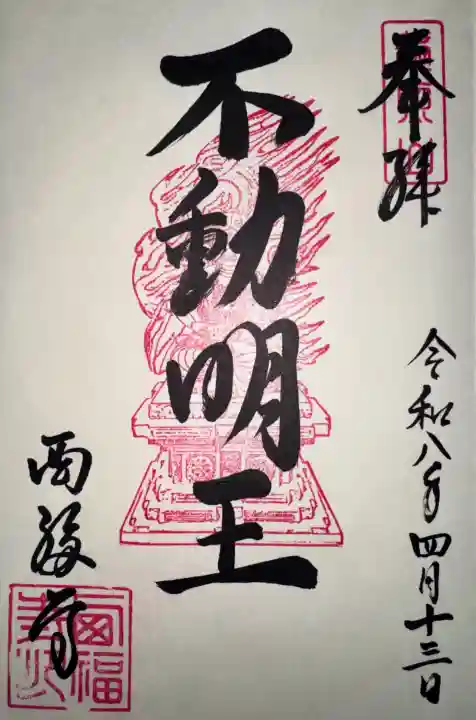 奉拝
令和八年四月十三日
不動明王
西福寺